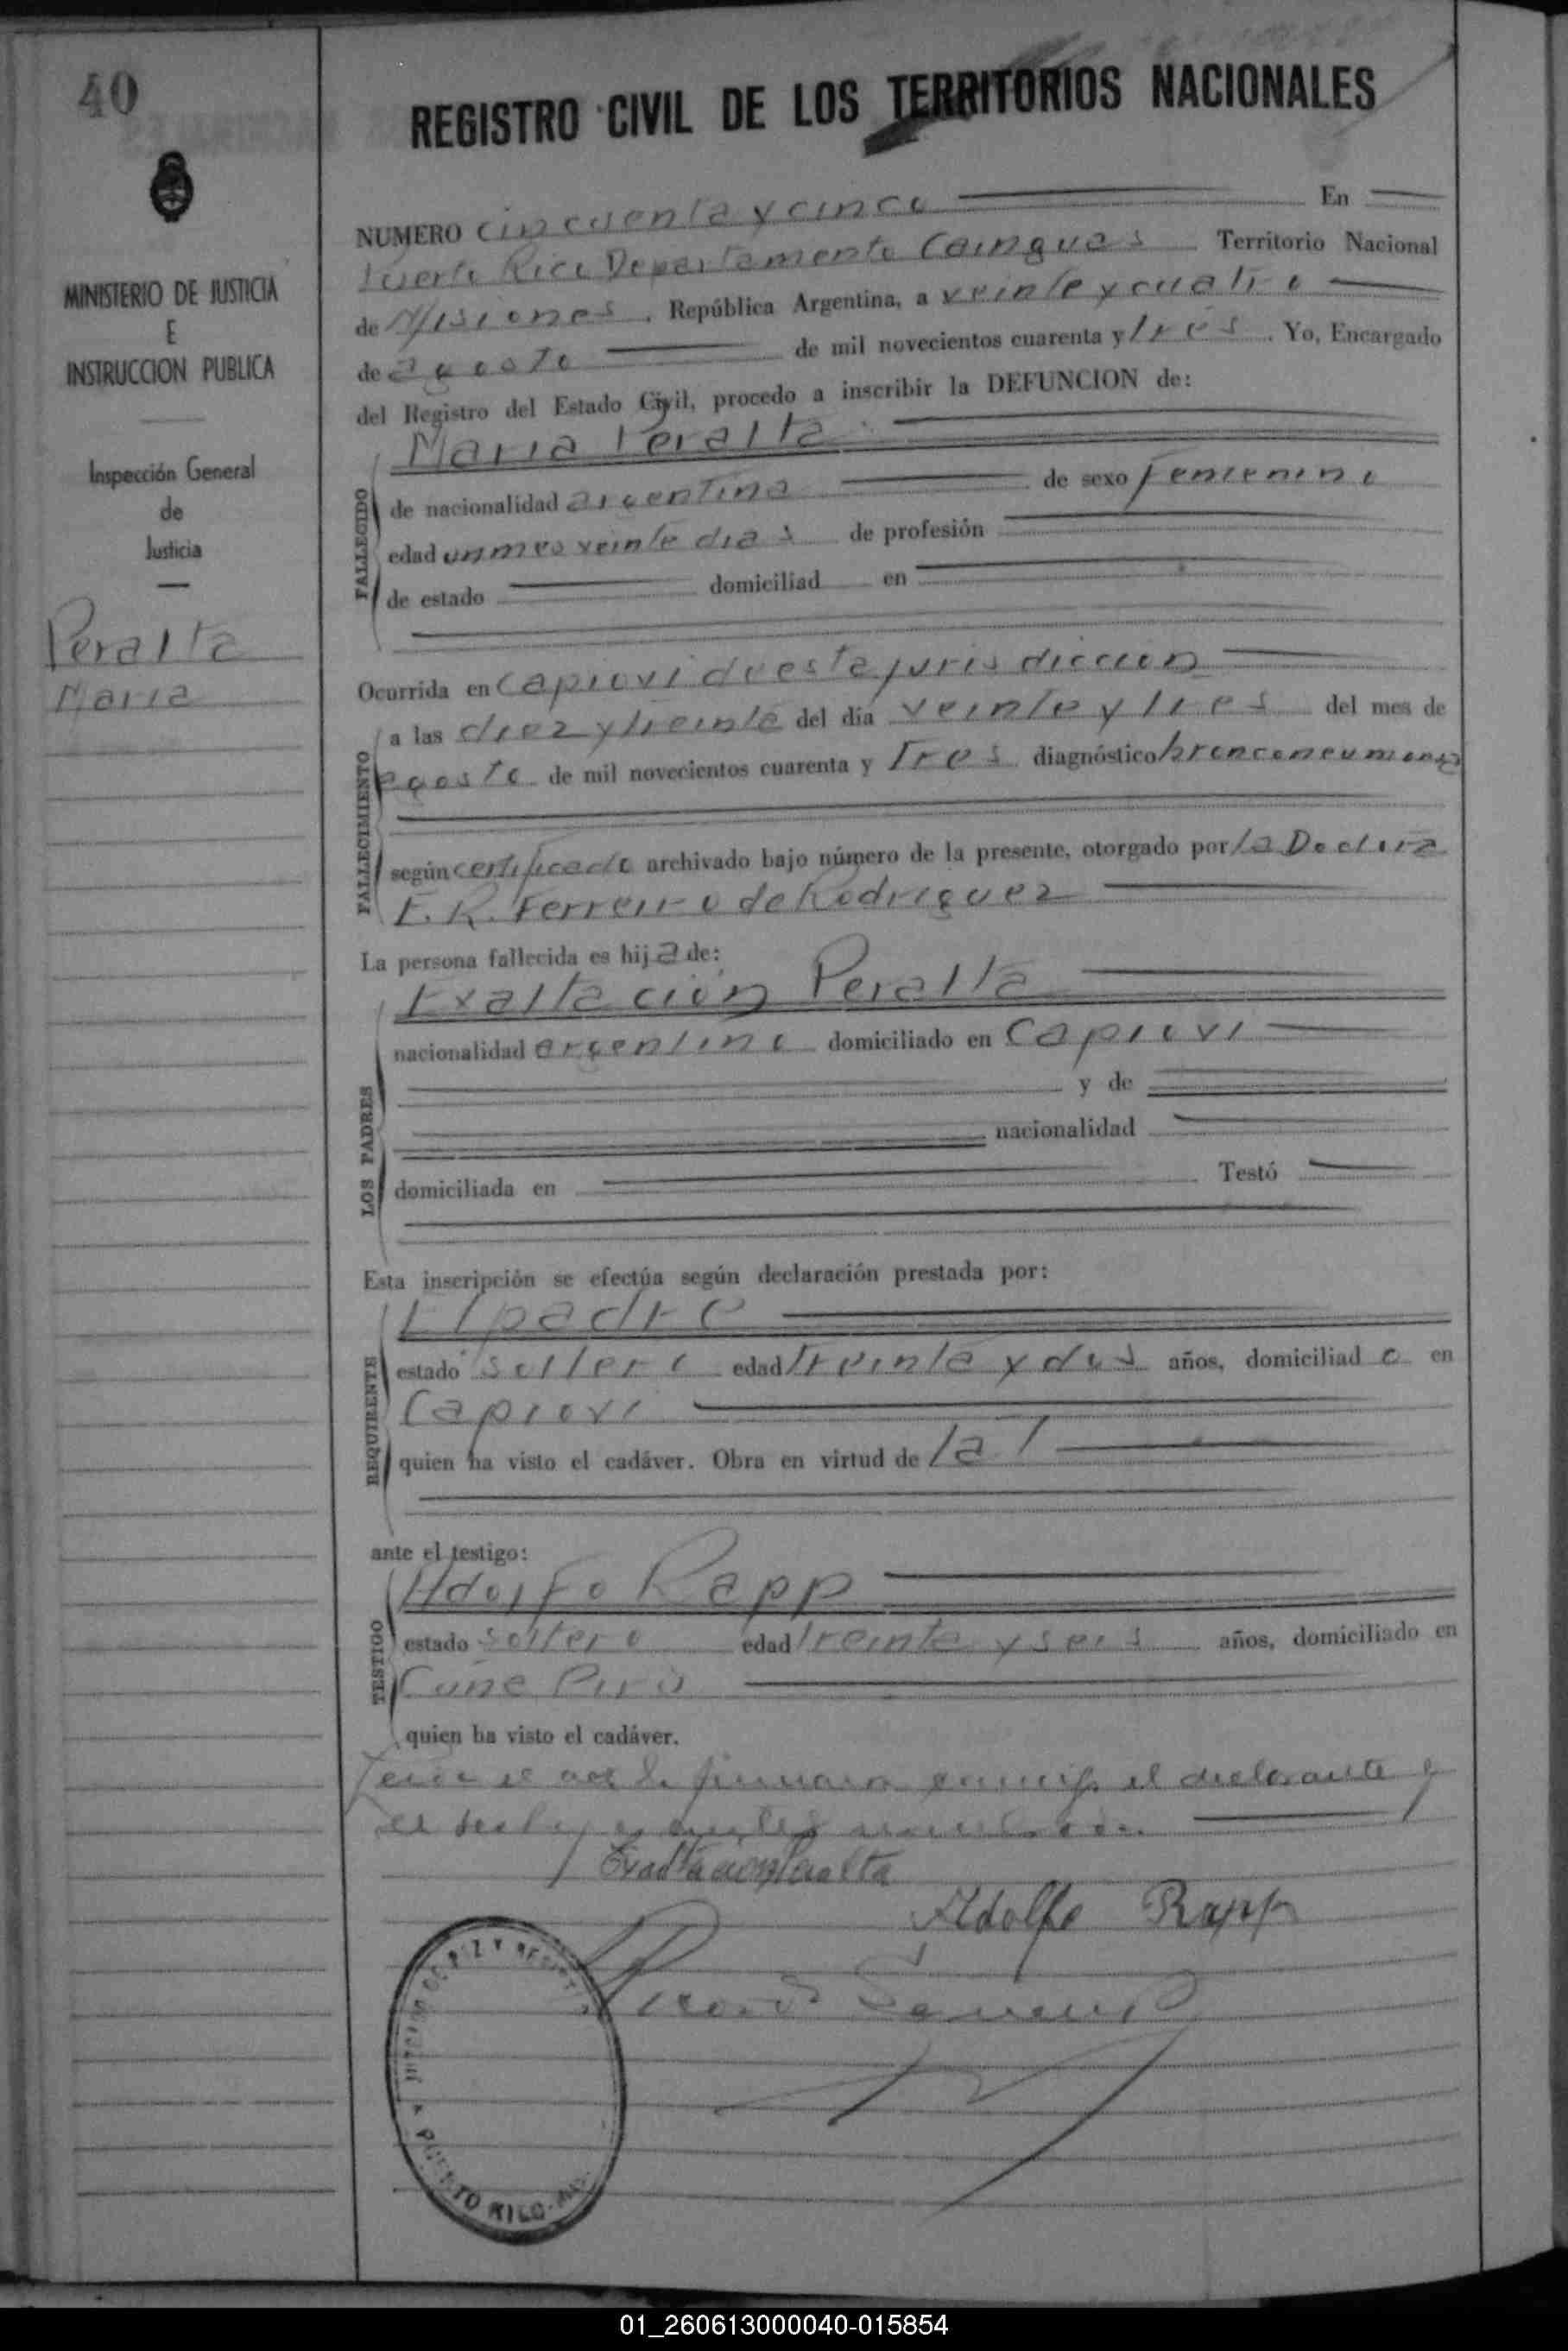 40
REGISTRO CIVIL DE LOS TERRITORIOS NACIONALES
MINISTERIO DE JUSTICIA
E
INSTRUCCION PUBLICA
Inspección General
de
Justicia
Peralta
Maria
NUMERO cincuenta y cinco En
Puerto Rico Departamento Cainguas Territorio Nacional
de Misiones, República Argentina, a veinte y cuatro
de agosto de mil novecientos cuarenta y tres. Yo, Encargado
del Registro del Estado Civil, procedo a inscribir la DEFUNCION de:
Maria Peralta
FALLECIDO
de nacionalidad argentina de sexo femenino
edad un mes veinte dias de profesión
de estado domiciliad en
Ocurrida en Capiovi de esta jurisdiccion
FALLECIMIENTO
a las diez y treinta del día veinte y tres del mes de
agosto de mil novecientos cuarenta y tres diagnóstico bronconeumonia
según certificado archivado bajo número de la presente, otorgado por la Doctora
E. R. Ferreiro de Rodriguez
La persona fallecida es hija de:
Exaltación Peralta
LOS PADRES
nacionalidad argentino domiciliado en Capiovi
y de
nacionalidad
domiciliada en Testó
Esta inscripción se efectúa según declaración prestada por:
El padre
REQUIRENTE
estado soltero edad treinta y dos años, domiciliado en
Capiovi
quien ha visto el cadáver. Obra en virtud de la l
ante el testigo:
Adolfo Rapp
TESTIGO
estado soltero edad treinta y seis años, domiciliado en
Cuña Pirú
quien ha visto el cadáver.
el declarante y
el
Exaltación Peralta
Adolfo Rapp
JUZGADO DE PAZ Y
PUERTO RICO
01_260613000040-015854